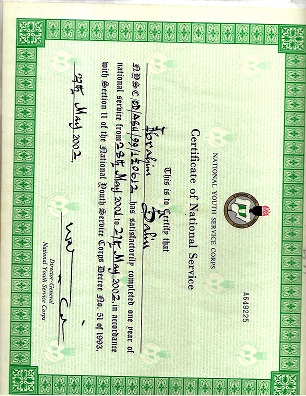 A649225
NATIONAL YOUTH SERVICE CORPS
Certificate of National Service
This is to Certify that
Ibrahim Dahu
NYSC has satisfactorily completed one year of
national service from 28th May 2001 to 27th May 2002 in accordance
with Section 11 of the National Youth Service Corps Decree No. 51 of 1993.
27th May 2002
Director-General
National Youth Service Corps